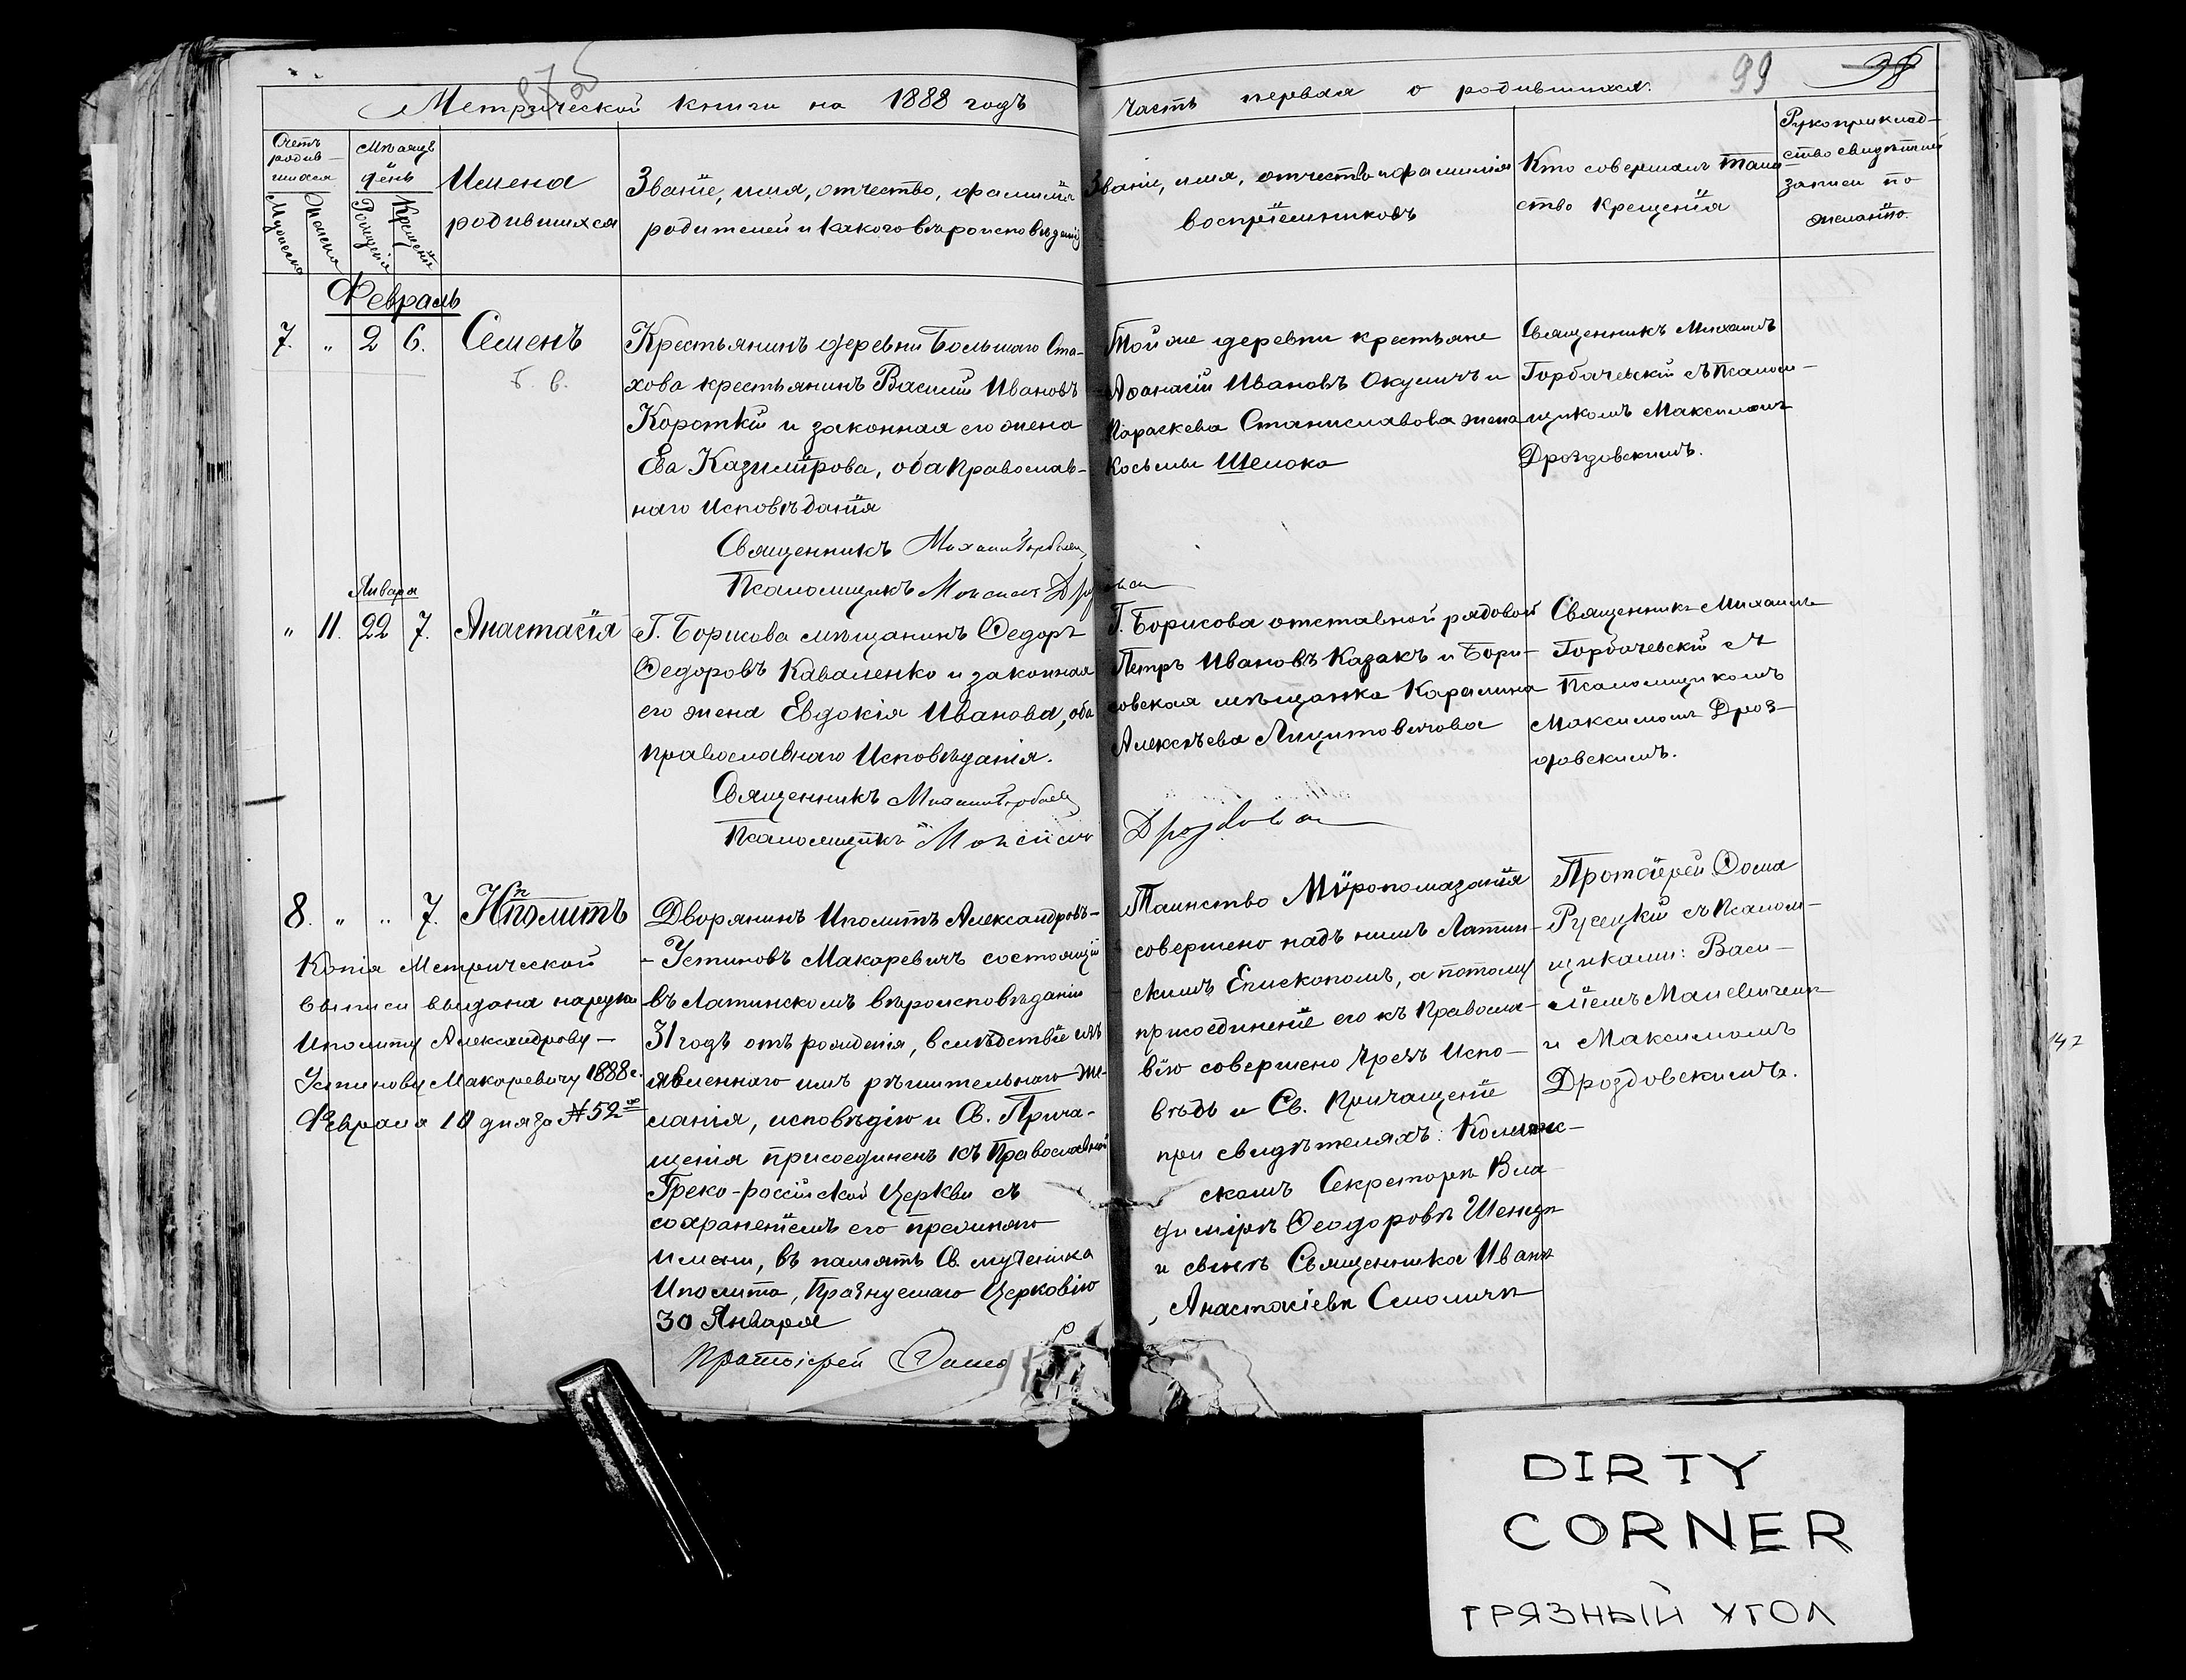 875
99
38
Метрической книги на 1888 годъ
часть первая о родившихся.
Счетъ родив-
шихся
Мужеска
Женска
Мѣсяцъ
день
Рожденія
Крещенія
Имена
родившихся
Званіе, имя, отчество, фамилія
родителей и какого вѣроисповѣданія
Званіе, имя, отчество и фамилія
воспріемниковъ
Кто совершалъ Таин-
ство крещенія
Рукоприклад-
ство свидѣтелей
записи по
желанію.
Февраль
7. " 2 6. Семенъ
Б. в.
Крестьянинъ деревни Большаго Ста-
хова крестьянинъ Василій Ивановъ
Короткій и законная его жена
Ева Казимірова, оба Православ-
наго Исповѣданія
Священникъ Михаилъ
Псаломщикъ Максимъ
Той же деревни крестьяне
Аѳанасій Ивановъ Окуличъ и
Параскева Станиславова жена
Косьмы Шелока
Священникъ Михаилъ
Горбачевскій съ Псалом-
щикомъ Максимомъ
Дроздовскимъ.
Января
" 11. 22 7. Анастасія
Г. Борисова мѣщанинъ Ѳедоръ
Ѳедоровъ Каваленко и законная
его жена Евдокія Иванова, оба
православнаго Исповѣданія.
Священникъ Михаилъ
Псаломщикъ Максимъ
Г. Борисова отставной рядовой
Петръ Ивановъ Казакъ и Бори-
совская мѣщанка Каралина
Алексѣева
Священникъ Михаилъ
Горбачевскій съ
Псаломщикомъ
Максимомъ Дроз-
довскимъ.
8. " " 7. Ипполитъ
Копія Метрической
выписи выдана на руки
Иполиту Александрову-
Устинову Макаревичу 1888 г.
Февраля 10 дня за № 52
Дворянинъ Иполитъ Александровъ-
-Устиновъ Макаревичъ состоящій
въ Латинскомъ вѣроисповѣданіи
31 годъ отъ рожденія, вслѣдствіе изъ
явленнаго имъ рѣшительнаго же-
ланія, исповѣдію и Св. Прича-
щенія присоединенъ къ Православной
Греко-россійской Церкви съ
сохраненіемъ его прежняго
имени, въ память Св. мученика
Иполита, Празнуемаго Церковію
30 Января
Протоіерей Ѳома
Таинство Мѵропомазанія
совершено надъ нимъ Латин-
скимъ Епископомъ, а потому
присоединеніе его къ Правосла-
вію совершено чрезъ Испо-
вѣдь и Св. Причащеніе
при свидѣтеляхъ:
Секретарѣ Вла-
димірѣ Ѳеодоровѣ
и сынѣ Священника Иванѣ
Анастасіевѣ Смоличѣ
Протоіерей Ѳома
Русецкій съ Псалом-
щиками: Васи-
ліемъ Маневичемъ
и Максимомъ
Дроздовскимъ.
DIRTY
CORNER
ГРЯЗНЫЙ УГОЛ